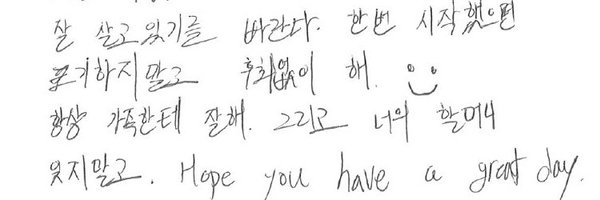 잘 살고 있기를 바란다. 한번 시작했으면
포기하지말고 후회없이 해.
항상 가족한테 잘해. 그리고 너의 할머니
잊지말고. Hope you have a great day.